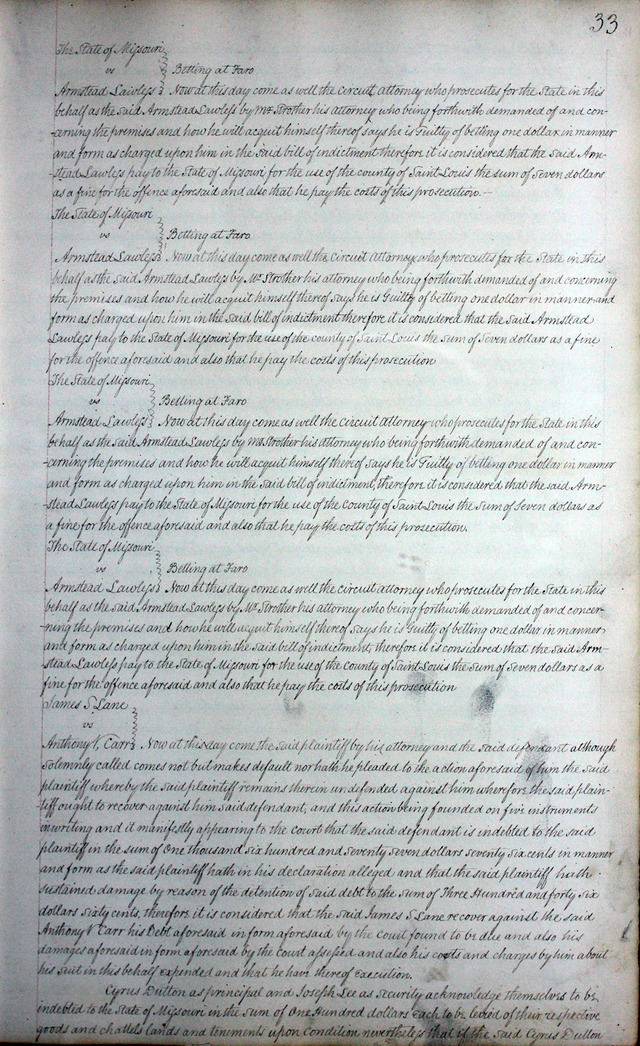 33
The State of Missouri
vs Betting at Faro
Armstead Lawless Now at this day come as well the circuit attorney who prosecutes for the State in this
behalf as the said Armstead Lawless by Mr Strother his attorney who being forthwith demanded of and con-
-cerning the premises and how he will acquit himself thereof says he is Guilty of betting one dollar in manner
and form as charged upon him in the said bill of indictment therefore it is considered that the said Arm-
-stead Lawless pay to the State of Missouri for the use of the county of Saint Louis the sum of Seven dollars
as a fine for the offence aforesaid and also that he pay the costs of this prosecution. —
The State of Missouri
vs Betting at Faro
Armstead Lawless Now at this day come as well the Circuit Attorney who prosecutes for the State in this
behalf as the said Armstead Lawless by Mr Strother his attorney who being forthwith demanded of and concerning
the premises and how he will acquit himself thereof Says he is Guilty of betting one dollar in manner and
form as charged upon him in the said bill of indictment therefore it is considered that the said Armstead
Lawless pay to the State of Missouri for the use of the county of Saint Louis the sum of Seven dollars as a fine
for the offence aforesaid and also that he pay the costs of this prosecution
The State of Missouri
vs Betting at Faro
Armstead Lawless Now at this day come as well the circuit Attorney who prosecutes for the State in this
behalf as the said Armstead Lawless by Mr Strother his attorney who being forthwith demanded of and con-
-cerning the premises and how he will acquit himself thereof says he is Guilty of betting one dollar in manner
and form as charged upon him in the Said bill of indictment, therefore it is considered that the said Arm-
-stead Lawless pay to the State of Missouri for the use of the County of Saint Louis the Sum of Seven dollars as
a fine for the offence aforesaid and also that he pay the costs of this prosecution.
The State of Missouri
vs Betting at Faro
Armstead Lawless Now at this day come as well the circuit attorney who prosecutes for the State in this
behalf as the said Armstead Lawless by Mr Strother his attorney who being forthwith demanded of and concer-
-ning the premises and how he will acquit himself thereof Says he is Guilty of betting one dollar in manner
and form as charged upon him in the Said bill of indictment, therefore it is considered that the Said Arm-
-stead Lawless pay to the State of Missouri for the use of the County of Saint Louis the sum of Seven dollars as a
fine for the offence aforesaid and also that he pay the costs of this prosecution
James S Lane
vs
Anthony V. Carr Now at this day come the said plaintiff by his attorney and the said defendant although
solemnly called comes not but makes default nor hath he pleaded to the action aforesaid of him the Said
plaintiff whereby the said plaintiff remains therein undefended against him wherefore the said plain-
-tiff ought to recover against him said defendant, and this action being founded on five instruments
in writing and it manifestly appearing to the court that the said defendant is indebted to the said
plaintiff in the sum of One thousand Six hundred and Seventy Seven dollars Seventy Six cents in manner
and form as the said plaintiff hath in his declaration alleged and that the said plaintiff hath
sustained damage by reason of the detention of said debt to the sum of Three Hundred and forty Six
dollars Sixty cents, therefore it is considered that the said James S Lane recover against the said
Anthony V Carr his Debt aforesaid in form aforesaid by the Court found to be due and also his
damages aforesaid in form aforesaid by the Court assessed and also his costs and charges by him about
his suit in this behalf expended and that he have thereof Execution.
Cyrus Dutton as principal and Joseph Lee as Security acknowledge themselves to be
indebted to the State of Missouri in the sum of One Hundred dollars Each to be levied of their respective
goods and chattels lands and tenements upon Condition nevertheless that if the said Cyrus Dutton